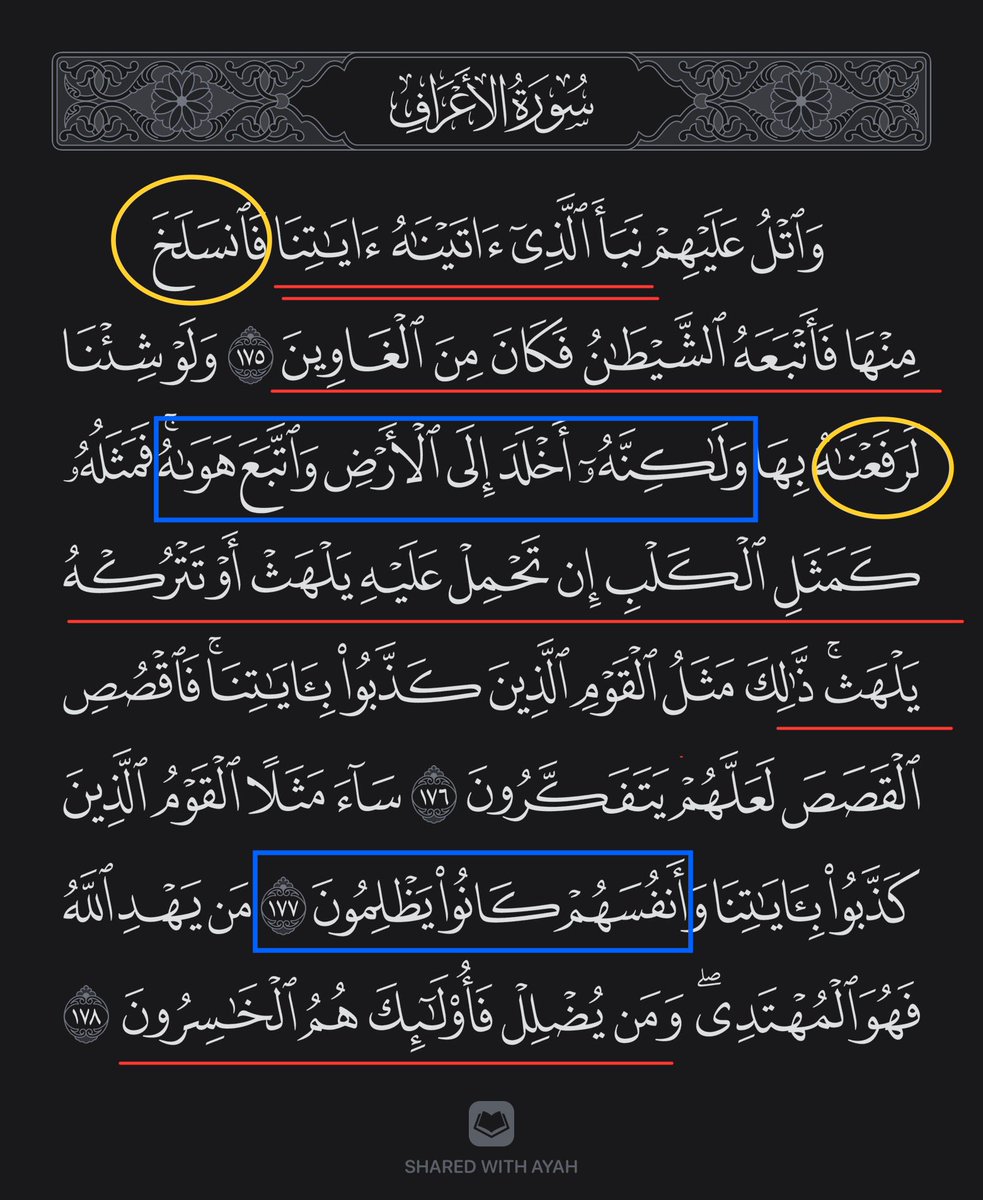 سُورَةُ الأَعۡرَافِ
وَٱتۡلُ عَلَيۡهِمۡ نَبَأَ ٱلَّذِيٓ ءَاتَيۡنَٰهُ ءَايَٰتِنَا فَٱنسَلَخَ
مِنۡهَا فَأَتۡبَعَهُ ٱلشَّيۡطَٰنُ فَكَانَ مِنَ ٱلۡغَاوِينَ ١٧٥ وَلَوۡ شِئۡنَا
لَرَفَعۡنَٰهُ بِهَا وَلَٰكِنَّهُۥٓ أَخۡلَدَ إِلَى ٱلۡأَرۡضِ وَٱتَّبَعَ هَوَىٰهُۚ فَمَثَلُهُۥ
كَمَثَلِ ٱلۡكَلۡبِ إِن تَحۡمِلۡ عَلَيۡهِ يَلۡهَثۡ أَوۡ تَتۡرُكۡهُ
يَلۡهَثۚ ذَّٰلِكَ مَثَلُ ٱلۡقَوۡمِ ٱلَّذِينَ كَذَّبُواْ بِـَٔايَٰتِنَاۚ فَٱقۡصُصِ
ٱلۡقَصَصَ لَعَلَّهُمۡ يَتَفَكَّرُونَ ١٧٦ سَآءَ مَثَلًا ٱلۡقَوۡمُ ٱلَّذِينَ
كَذَّبُواْ بِـَٔايَٰتِنَا وَأَنفُسَهُمۡ كَانُواْ يَظۡلِمُونَ ١٧٧ مَن يَهۡدِ ٱللَّهُ
فَهُوَ ٱلۡمُهۡتَدِيۖ وَمَن يُضۡلِلۡ فَأُوْلَٰٓئِكَ هُمُ ٱلۡخَٰسِرُونَ ١٧٨
SHARED WITH AYAH